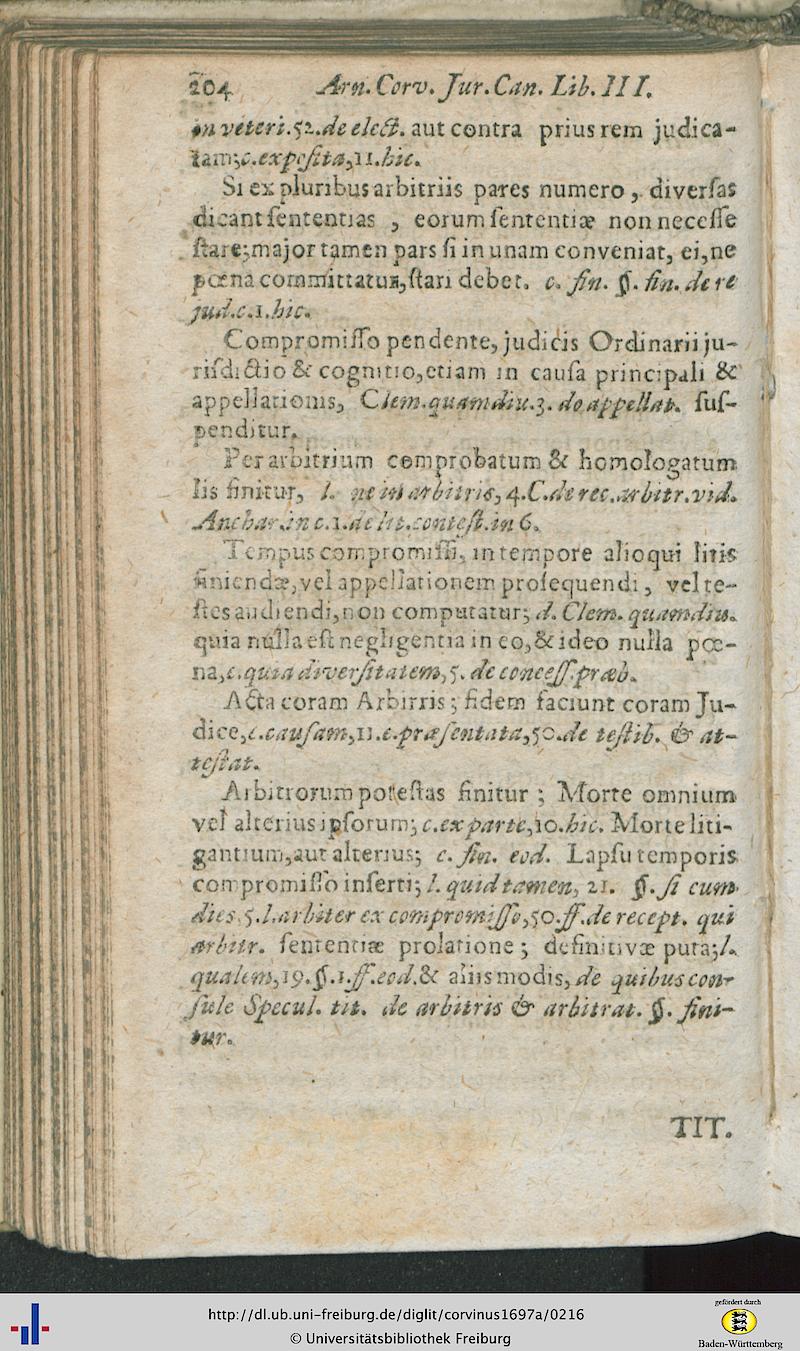 204 Arn. Corv. Jur. Can. Lib. III.
in veteri.52.de elect. aut contra prius rem judica-
tam;c.exposita,11.hic.
Si ex pluribus arbitriis pares numero, diversas
dicant sententias , eorum sententiæ non necesse
stare;major tamen pars si in unam conveniat, ei,ne
pœna committatur,stari debet. c. fin. §. fin. de re
jud.c.1.hic.
Compromisso pendente, judicis Ordinarii ju-
risdictio & cognitio,etiam in causa principali &
appellationis, Clem.quamdiu.3. de appellat. sus-
penditur.
Per arbitrium comprobatum & homologatum
lis finitur, l. ne in arbitris, 4.C.de rec.arbitr.vid.
Anchar.in c.1.de lit.contest.in 6.
Tempus compromissi, in tempore alioqui litis
finiendæ,vel appellationem prosequendi, vel te-
stes audiendi,non computatur; d. Clem. quamdiu.
quia nulla est negligentia in eo,& ideo nulla pœ-
na,c.quia diversitatem,5. de concess.præb.
Acta coram Arbitris; fidem faciunt coram Ju-
dice,c.causam,11.c.præsentata,50.de testib. & at-
testat.
Arbitrorum potestas finitur ; Morte omnium
vel alterius ipsorum; c.ex parte,10.hic. Morte liti-
gantium,aut alterius; c. fin. eod. Lapsu temporis
compromisso inserti; l. quid tamen, 21. §. si cum
dies.5.l.arbiter ex compromisso,50.ff.de recept. qui
arbitr. sententiæ prolatione ; definitivæ puta;l.
qualem,19.§.1.ff.eod.& aliis modis, de quibus con-
sule Specul. tit. de arbitris & arbitrat. §. fini-
tur.
TIT.
http://dl.ub.uni-freiburg.de/diglit/corvinus1697a/0216
© Universitätsbibliothek Freiburg
gefördert durch
Baden-Württemberg